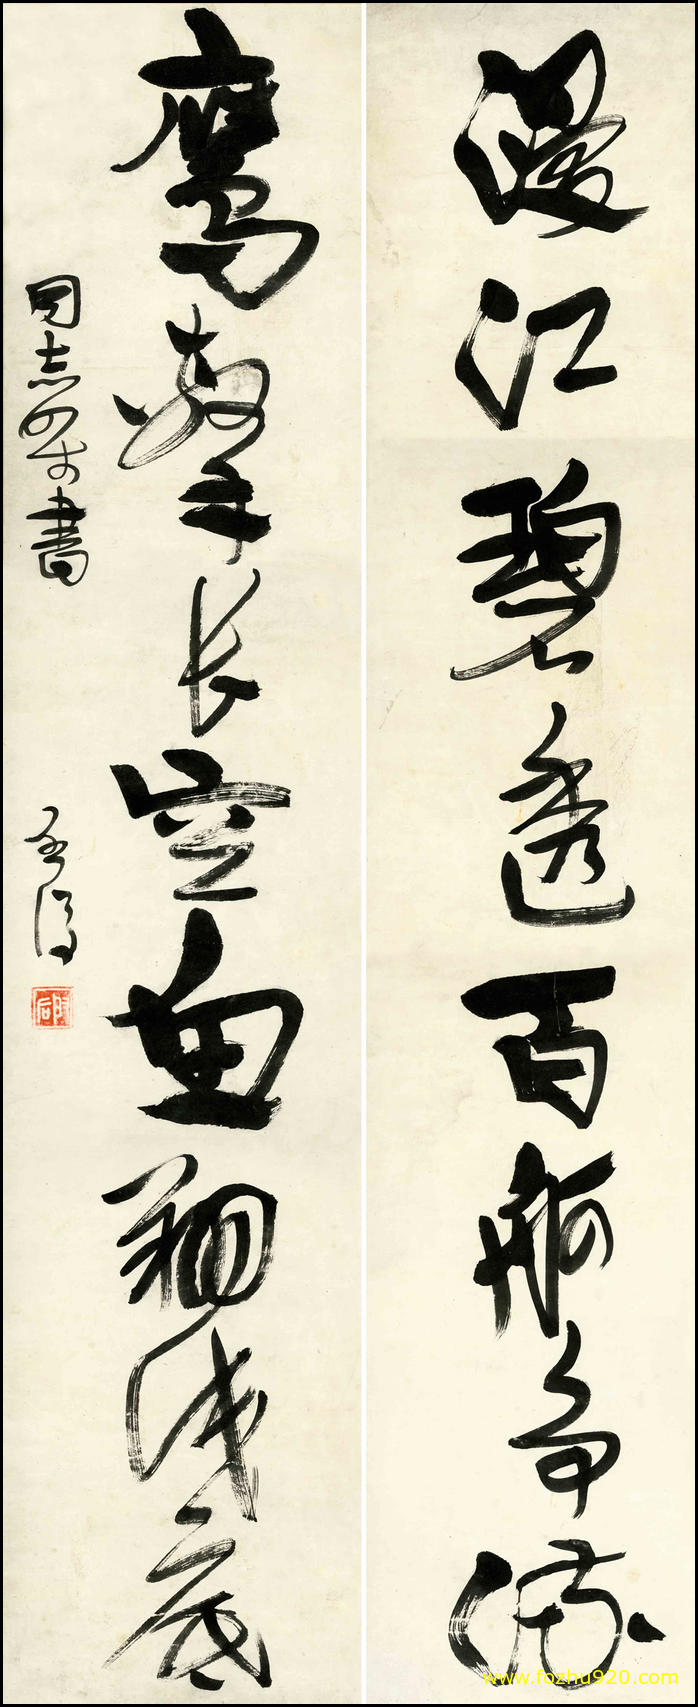 漫江碧透百舸争流
鹰擊长空鱼翔浅底
同志 书
www.fozhu920.com